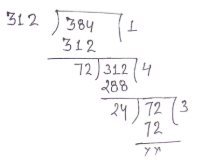 312 ) 384 ( 1
312
72 ) 312 ( 4
288
24 ) 72 ( 3
72
xx